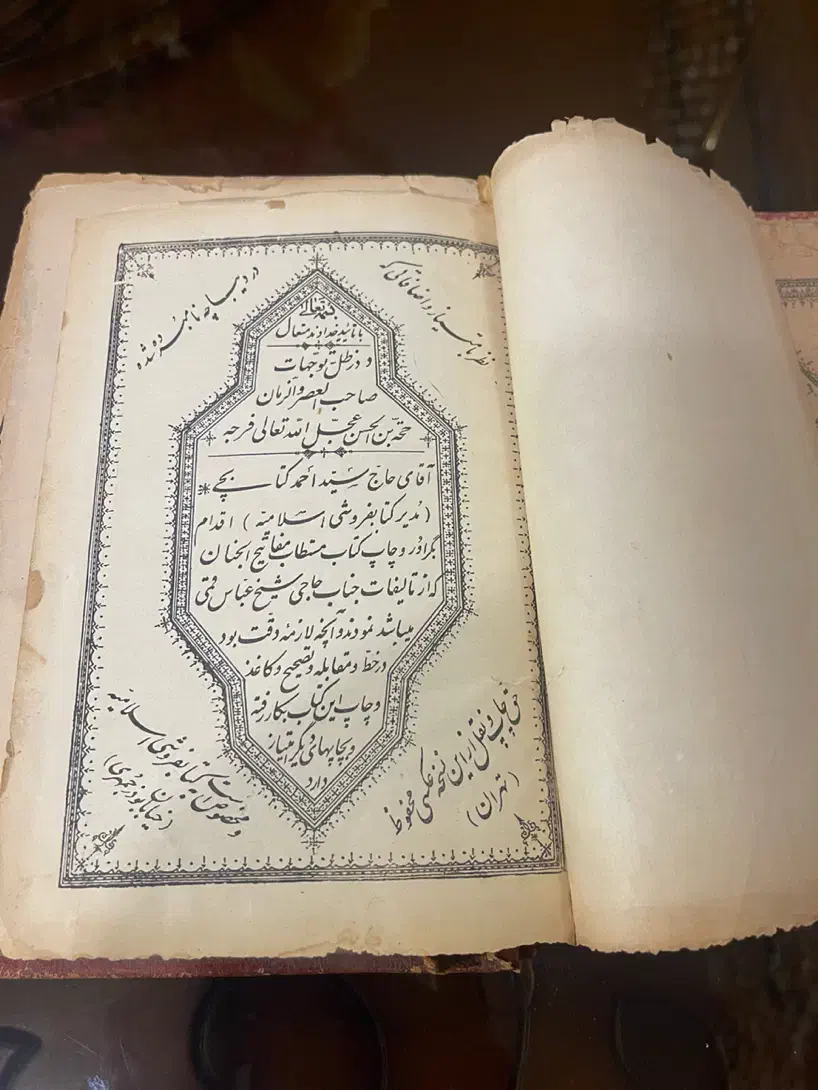 نظر بامتیاز و اضافاتی که
در دیباچه نامبرده شده
بسمه تعالی
با تأیید خداوند متعال
و در ظلّ توجّهات
صاحب العصر و الزمان
حجّة بن الحسن عجّل الله تعالی فرجه
آقای حاج سیّد احمد کتابچے
(مدیر کتابفروشی اسلامیّه) اقدام
بگراور و چاپ کتاب مستطاب مفاتیح الجنان
که از تالیفات جناب حاجی شیخ عبّاس قمّی
میباشد نمودند و آنچه لازمهٔ دقّت بود
در خطّ و مقابله و تصحیح و کاغذ
و چاپ این کتاب بکار رفته
و بچاپهای دیگر امتیاز
دارد
حق چاپ و نقل از این نسخه عکسی محفوظ
(تهران)
و مخصوص است بکتابفروشی اسلامیّه
(خیابان بوذرجمهری)